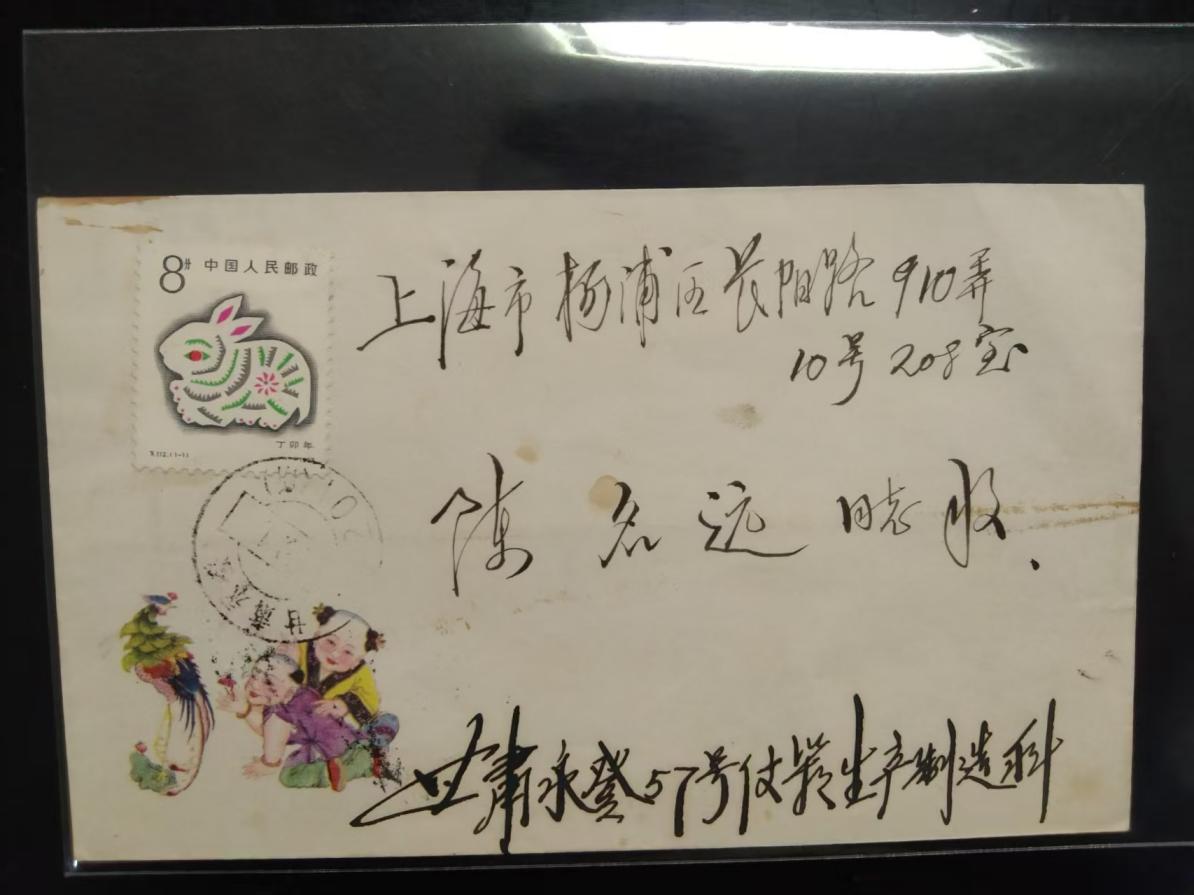 8分 中国人民邮政
丁卯年
T.112.(1-1)
上海市杨浦区长阳路910弄
10号208室
陈名远 同志收
甘肃永登
甘肃永登57号仗影生产制造科